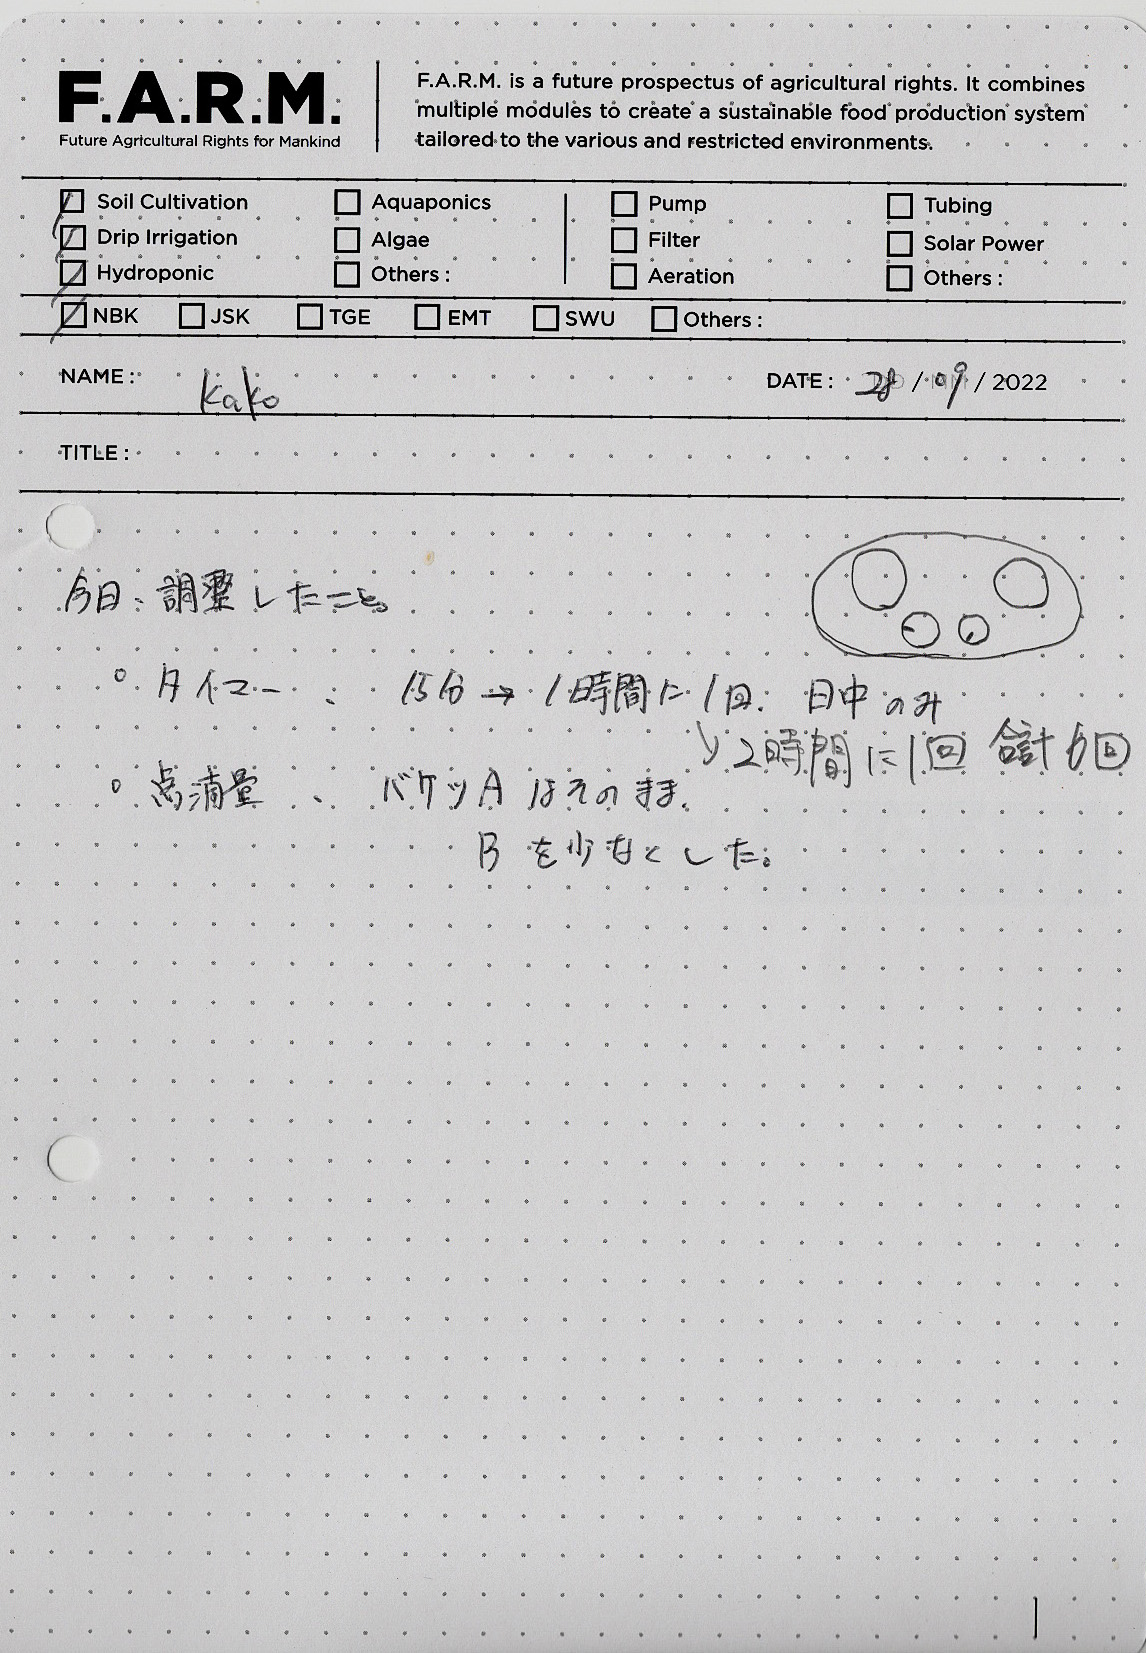 F.A.R.M.
Future Agricultural Rights for Mankind
F.A.R.M. is a future prospectus of agricultural rights. It combines
multiple modules to create a sustainable food production system
tailored to the various and restricted environments.
Soil Cultivation Aquaponics Pump Tubing
Drip Irrigation Algae Filter Solar Power
Hydroponic Others : Aeration Others :
NBK JSK TGE EMT SWU Others :
NAME : Kako DATE : 28 / 09 / 2022
TITLE :
今日、調整したこと。
° タイマー : 15分 → 1時間に1回. 日中のみ
↘ 2時間に1回 合計6回
° 点滴量 、 バケツAはそのまま.
Bを少なくした。